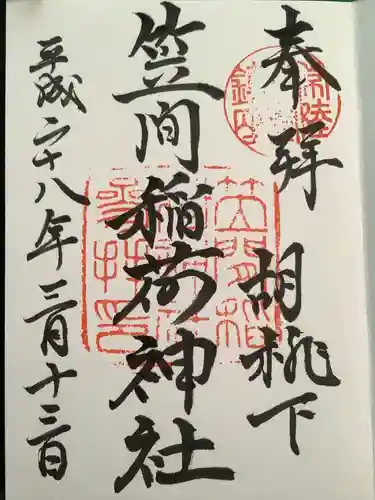 奉拜 胡桃下
笠間稲荷神社
平成二十八年三月十三日